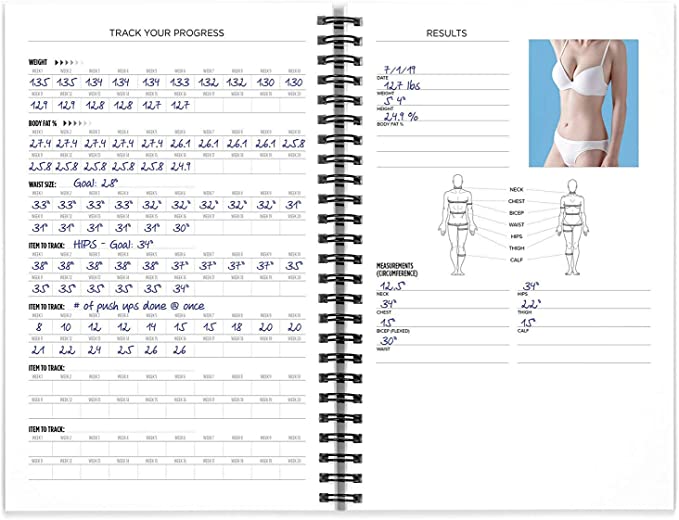 TRACK YOUR PROGRESS
WEIGHT
WEEK 1 WEEK 2 WEEK 3 WEEK 4 WEEK 5 WEEK 6 WEEK 7 WEEK 8 WEEK 9 WEEK 10
135 135 134 134 134 133 132 132 130 130
WEEK 11 WEEK 12 WEEK 13 WEEK 14 WEEK 15 WEEK 16 WEEK 17 WEEK 18 WEEK 19 WEEK 20
129 129 128 128 127 127
BODY FAT %
WEEK 1 WEEK 2 WEEK 3 WEEK 4 WEEK 5 WEEK 6 WEEK 7 WEEK 8 WEEK 9 WEEK 10
27.4 27.4 27.4 27.4 27.4 26.1 26.1 26.1 26.1 25.8
WEEK 11 WEEK 12 WEEK 13 WEEK 14 WEEK 15 WEEK 16 WEEK 17 WEEK 18 WEEK 19 WEEK 20
25.8 25.8 25.8 25.8 25.8 24.9
WAIST SIZE: Goal: 28"
WEEK 1 WEEK 2 WEEK 3 WEEK 4 WEEK 5 WEEK 6 WEEK 7 WEEK 8 WEEK 9 WEEK 10
33" 33" 33" 33" 32" 32" 32" 32" 31" 31"
WEEK 11 WEEK 12 WEEK 13 WEEK 14 WEEK 15 WEEK 16 WEEK 17 WEEK 18 WEEK 19 WEEK 20
31" 31" 31" 31" 31" 30"
ITEM TO TRACK: HIPS - Goal: 34"
WEEK 1 WEEK 2 WEEK 3 WEEK 4 WEEK 5 WEEK 6 WEEK 7 WEEK 8 WEEK 9 WEEK 10
38" 38" 38" 38" 38" 37" 37" 37" 37" 35"
WEEK 11 WEEK 12 WEEK 13 WEEK 14 WEEK 15 WEEK 16 WEEK 17 WEEK 18 WEEK 19 WEEK 20
35" 35" 35" 34" 34" 34"
ITEM TO TRACK: # of push ups done @ once
WEEK 1 WEEK 2 WEEK 3 WEEK 4 WEEK 5 WEEK 6 WEEK 7 WEEK 8 WEEK 9 WEEK 10
8 10 12 12 14 15 15 18 20 20
WEEK 11 WEEK 12 WEEK 13 WEEK 14 WEEK 15 WEEK 16 WEEK 17 WEEK 18 WEEK 19 WEEK 20
21 22 24 25 26 26
ITEM TO TRACK:
WEEK 1 WEEK 2 WEEK 3 WEEK 4 WEEK 5 WEEK 6 WEEK 7 WEEK 8 WEEK 9 WEEK 10
WEEK 11 WEEK 12 WEEK 13 WEEK 14 WEEK 15 WEEK 16 WEEK 17 WEEK 18 WEEK 19 WEEK 20
ITEM TO TRACK:
WEEK 1 WEEK 2 WEEK 3 WEEK 4 WEEK 5 WEEK 6 WEEK 7 WEEK 8 WEEK 9 WEEK 10
WEEK 11 WEEK 12 WEEK 13 WEEK 14 WEEK 15 WEEK 16 WEEK 17 WEEK 18 WEEK 19 WEEK 20
RESULTS
7/1/19
DATE
127 lbs
WEIGHT
5'4"
HEIGHT
24.9 %
BODY FAT %
NECK
CHEST
BICEP
WAIST
HIPS
THIGH
CALF
MEASUREMENTS
(CIRCUMFERENCE)
12.5"
NECK
34"
CHEST
15"
BICEP (FLEXED)
30"
WAIST
34"
HIPS
22"
THIGH
15"
CALF